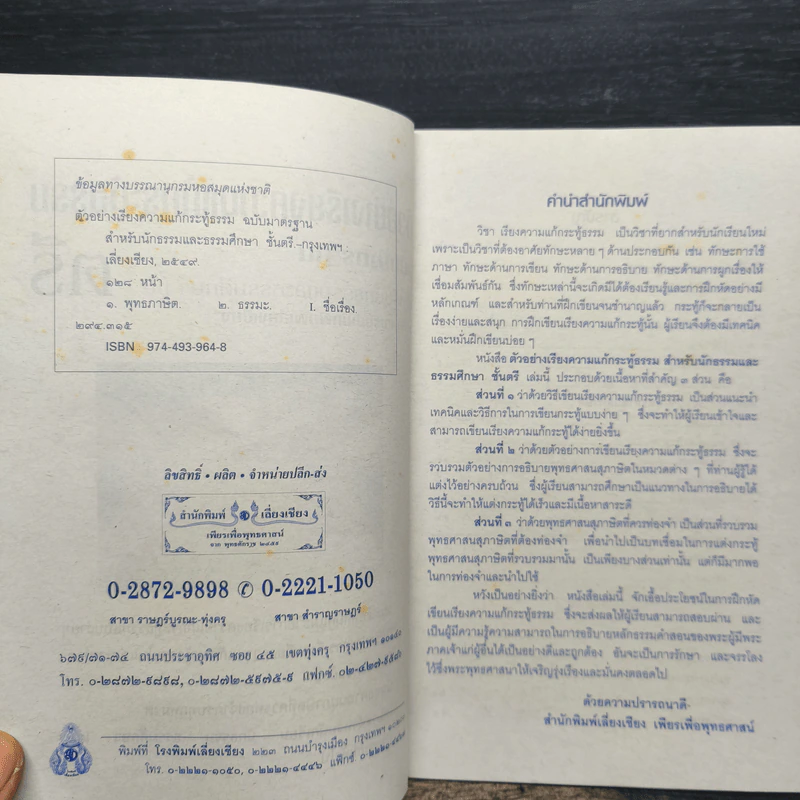 ข้อมูลทางบรรณานุกรมหอสมุดแห่งชาติ
ตัวอย่างเรียงความแก้กระทู้ธรรม ฉบับมาตรฐาน
สำหรับนักธรรมและธรรมศึกษา ชั้นตรี.-กรุงเทพฯ :
เลี่ยงเชียง, ๒๕๔๙.
๑๒๘ หน้า
๑. พุทธภาษิต. ๒. ธรรมะ. I. ชื่อเรื่อง.
๒๙๔.๓๑๕
ISBN 974-493-964-8
ลิขสิทธิ์ • ผลิต • จำหน่ายปลีก-ส่ง
สำนักพิมพ์ เลี่ยงเชียง
เพียรเพื่อพุทธศาสน์
0-2872-9898 ✆ 0-2221-1050
สาขา ราษฎร์บูรณะ-ทุ่งครุ สาขา สำราญราษฎร์
๖๗๙/๗๑-๗๔ ถนนประชาอุทิศ ซอย ๔๕ เขตทุ่งครุ กรุงเทพฯ ๑๐๑๔๐
โทร. ๐-๒๘๗๒-๙๘๙๘, ๐-๒๘๗๒-๕๙๗๕-๙ แฟกซ์.
พิมพ์ที่ โรงพิมพ์เลี่ยงเชียง ๒๒๓ ถนนบำรุงเมือง กรุงเทพฯ
โทร. ๐-๒๒๒๑-๑๐๕๐, ๐-๒๒๒๑-๔๔๔๖ แฟ็กซ์.
คำนำสำนักพิมพ์
วิชา เรียงความแก้กระทู้ธรรม เป็นวิชาที่ยากสำหรับนักเรียนใหม่
เพราะเป็นวิชาที่ต้องอาศัยทักษะหลาย ๆ ด้านประกอบกัน เช่น ทักษะการใช้
ภาษา ทักษะด้านการเขียน ทักษะด้านการอธิบาย ทักษะด้านการผูกเรื่องให้
เชื่อมสัมพันธ์กัน ซึ่งทักษะเหล่านี้จะเกิดมีได้ต้องเรียนรู้และการฝึกหัดอย่างมี
หลักเกณฑ์ และสำหรับท่านที่ฝึกเขียนจนชำนาญแล้ว กระทู้ก็จะกลายเป็น
เรื่องง่ายและสนุก การฝึกเขียนเรียงความแก้กระทู้นั้น ผู้เรียนจึงต้องมีเทคนิค
และหมั่นฝึกเขียนบ่อย ๆ
หนังสือ ตัวอย่างเรียงความแก้กระทู้ธรรม สำหรับนักธรรมและ
ธรรมศึกษา ชั้นตรี เล่มนี้ ประกอบด้วยเนื้อหาที่สำคัญ ๓ ส่วน คือ
ส่วนที่ ๑ ว่าด้วยวิธีเขียนเรียงความแก้กระทู้ธรรม เป็นส่วนแนะนำ
เทคนิคและวิธีการในการเขียนกระทู้แบบง่าย ๆ ซึ่งจะทำให้ผู้เรียนเข้าใจและ
สามารถเขียนเรียงความแก้กระทู้ได้ง่ายยิ่งขึ้น
ส่วนที่ ๒ ว่าด้วยตัวอย่างการเขียนเรียงความแก้กระทู้ธรรม ซึ่งจะ
รวบรวมตัวอย่างการอธิบายพุทธศาสนสุภาษิตในหมวดต่าง ๆ ที่ท่านผู้รู้ได้
แต่งไว้อย่างครบถ้วน ซึ่งผู้เรียนสามารถศึกษาเป็นแนวทางในการอธิบายได้
วิธีนี้จะทำให้แต่งกระทู้ได้เร็วและมีเนื้อหาสาระดี
ส่วนที่ ๓ ว่าด้วยพุทธศาสนสุภาษิตที่ควรท่องจำ เป็นส่วนที่รวบรวม
พุทธศาสนสุภาษิตที่ต้องท่องจำ เพื่อนำไปเป็นบทเชื่อมในการแต่งกระทู้
พุทธศาสนสุภาษิตที่รวบรวมมานั้น เป็นเพียงบางส่วนเท่านั้น แต่ก็มีมากพอ
ในการท่องจำและนำไปใช้
หวังเป็นอย่างยิ่งว่า หนังสือเล่มนี้ จักเอื้อประโยชน์ในการฝึกหัด
เขียนเรียงความแก้กระทู้ธรรม ซึ่งจะส่งผลให้ผู้เรียนสามารถสอบผ่าน และ
เป็นผู้มีความรู้ความสามารถในการอธิบายหลักธรรมคำสอนของพระผู้มีพระ
ภาคเจ้าแก่ผู้อื่นได้เป็นอย่างดีและถูกต้อง อันจะเป็นการรักษา และจรรโลง
ไว้ซึ่งพระพุทธศาสนาให้เจริญรุ่งเรืองและมั่นคงตลอดไป
ด้วยความปรารถนาดี-
สำนักพิมพ์เลี่ยงเชียง เพียรเพื่อพุทธศาสน์